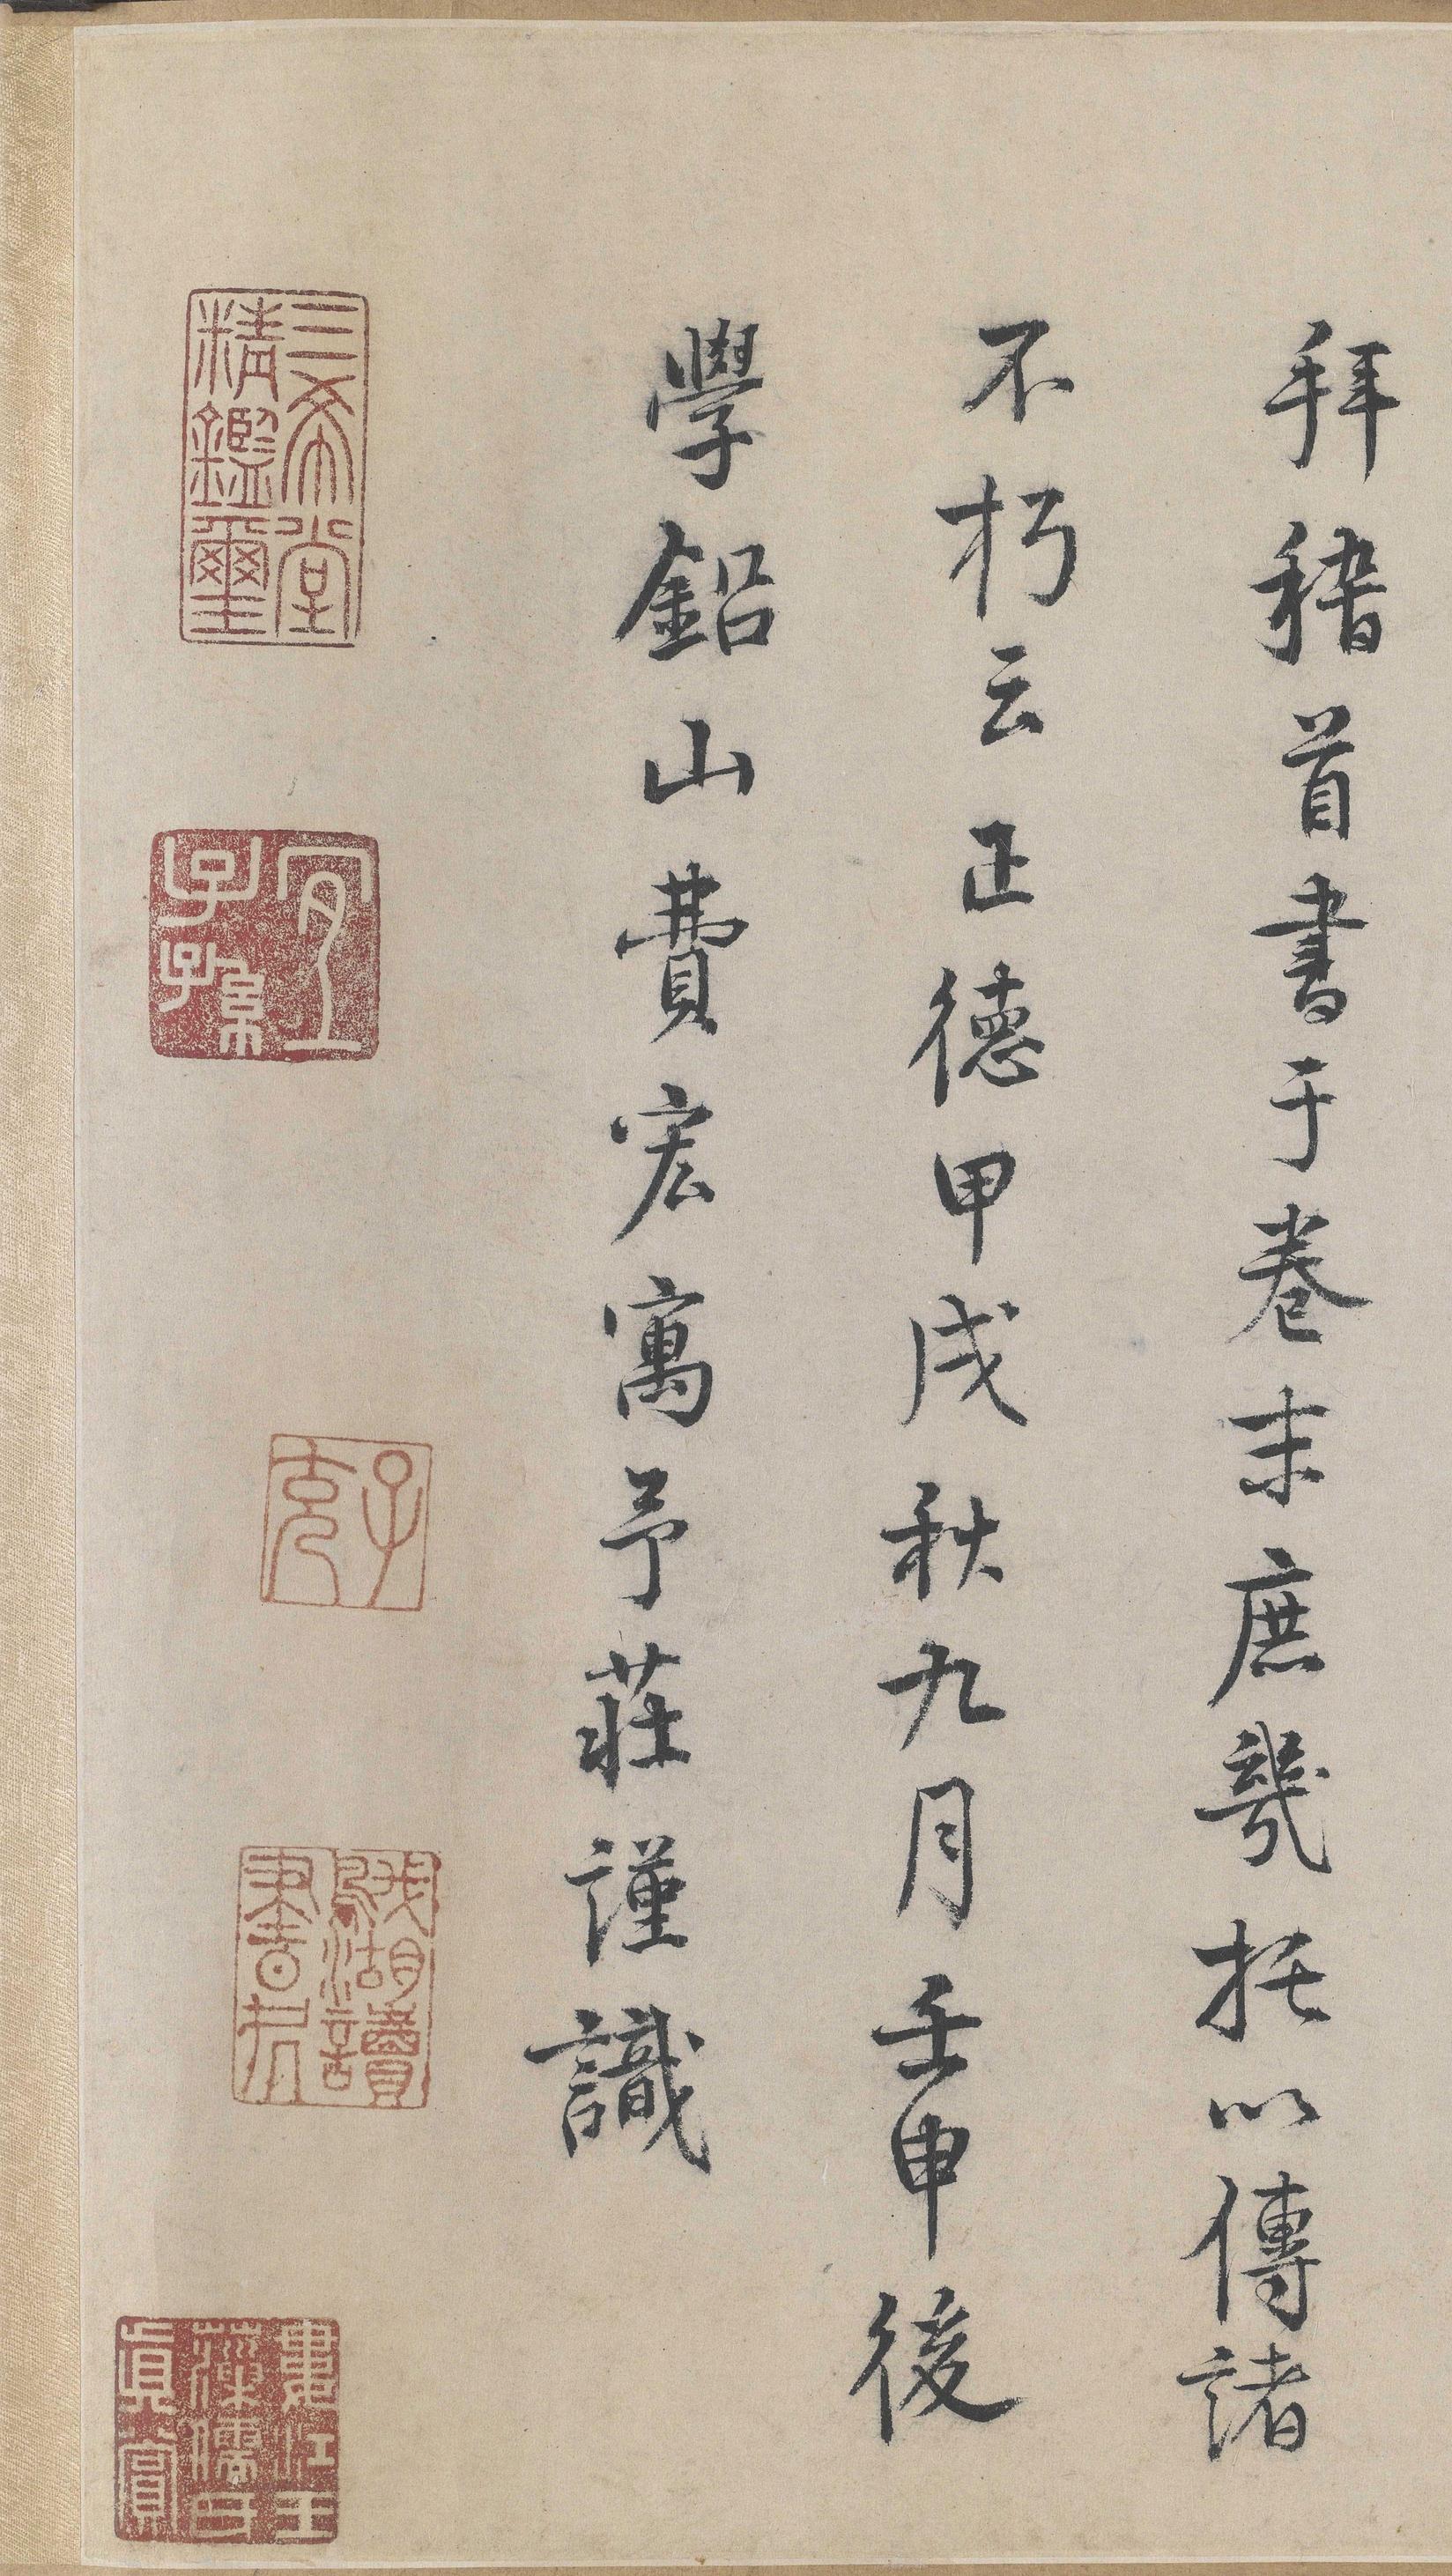 拜稽首書于卷末庶幾托以傳諸
不朽云正德甲戌秋九月壬申後
學鉛山費宏寓予莊謹識
三希堂
精鑑璽
宜
子孫
子
充
鵝湖讀
書